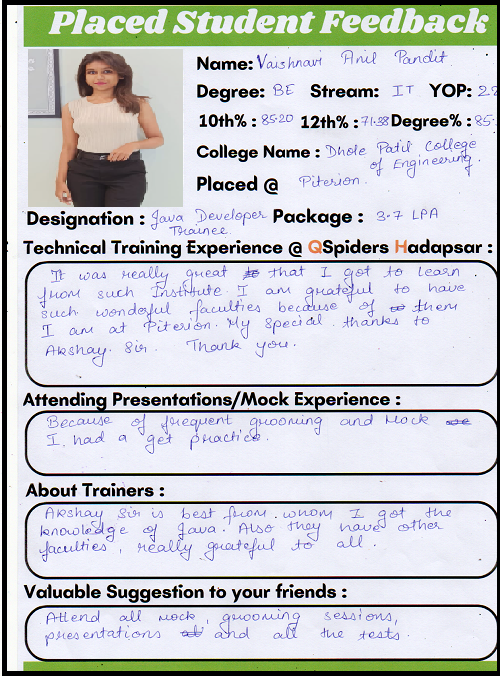 Placed Student Feedback
Name: Vaishnavi Anil Pandit
Degree: BE Stream: IT YOP: 22
10th% : 85.20 12th% : 71.38 Degree% : 85.
College Name : Dhole Patil College
of Engineering.
Placed @ Piterion.
Designation : Java Developer Package : 3.7 LPA
Trainee
Technical Training Experience @ QSpiders Hadapsar :
It was really great that I got to learn
from such Institute. I am grateful to have
such wondeful faculties because of them
I am at Piterion. My special thanks to
Akshay Sir. Thank you.
Attending Presentations/Mock Experience :
Because of frequent grooming and Mock
I had a get practice.
About Trainers :
Akshay Sir is best from whom I got the
knowledge of Java. Also they have other
faculties, really grateful to all.
Valuable Suggestion to your friends :
Attend all mock, grooming sessions,
presentations and all the tests.